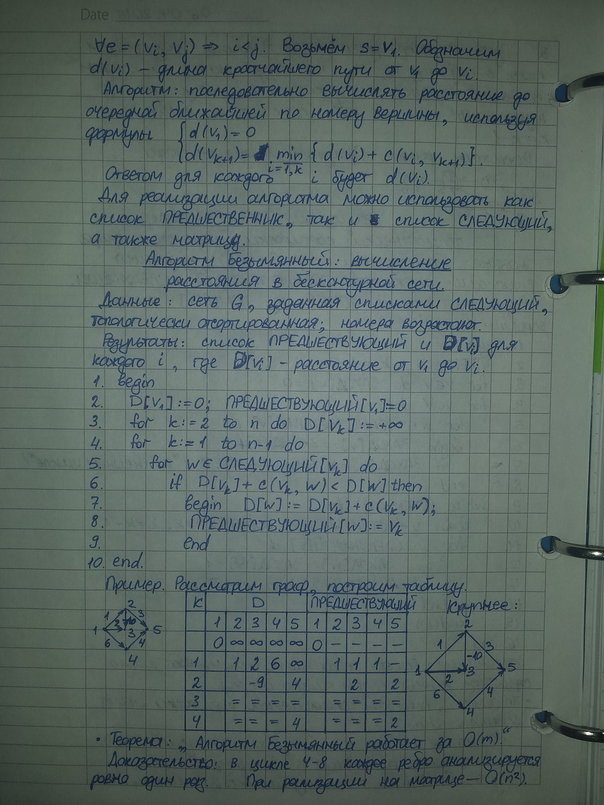 Date
∀e = (vi, vj) => i<j. Возьмём s=v1. Обозначим
d(vi) – длина кратчайшего пути от v1 до vi.
Алгоритм: последовательно вычислять расстояние до
очередной ближайшей по номеру вершины, используя
формулы { d(v1) = 0
d(vk+1) = min i=1,k { d(vi) + c(vi, vk+1)}.
Ответом для каждого i будет d(vi).
Для реализации алгоритма можно использовать как
список ПРЕДШЕСТВЕННИК, так и список СЛЕДУЮЩИЙ,
а также матрицу.
Алгоритм Безымянный: вычисление
расстояния в бесконтурной сети.
Данные: сеть G, заданная списками СЛЕДУЮЩИЙ,
топологически отсортированная, номера возрастают.
Результаты: список ПРЕДШЕСТВУЮЩИЙ и D[vi] для
каждого i, где D[vi] - расстояние от v1 до vi.
1. begin
2. D[v1] := 0; ПРЕДШЕСТВУЮЩИЙ[v1]=0
3. for k:= 2 to n do D[vk] := +∞
4. for k:= 1 to n-1 do
5. for w ∈ СЛЕДУЮЩИЙ[vk] do
6. if D[vk] + c(vk, w) < D[w] then
7. begin D[w] := D[vk] + c(vk, w);
8. ПРЕДШЕСТВУЮЩИЙ[w] := vk
9. end
10. end.
Пример. Рассмотрим граф, построим таблицу.
K D ПРЕДШЕСТВУЮЩИЙ Крупнее:
1 2 3 4 5 1 2 3 4 5
0 ∞ ∞ ∞ ∞ 0 – – – –
1 1 2 6 ∞ 1 1 1 –
2 -9 4 2 2
3 = = = = = = = =
4 = = = 4 = = = 2
1 2 3 4 5 1 3 2 -10 6 4
1 2 3 4 5 1 3 2 -10 6 4
• Теорема: „Алгоритм Безымянный работает за O(m)."
Доказательство: в цикле 4-8 каждое ребро анализируется
ровно один раз. При рализации на матрице – O(n²).